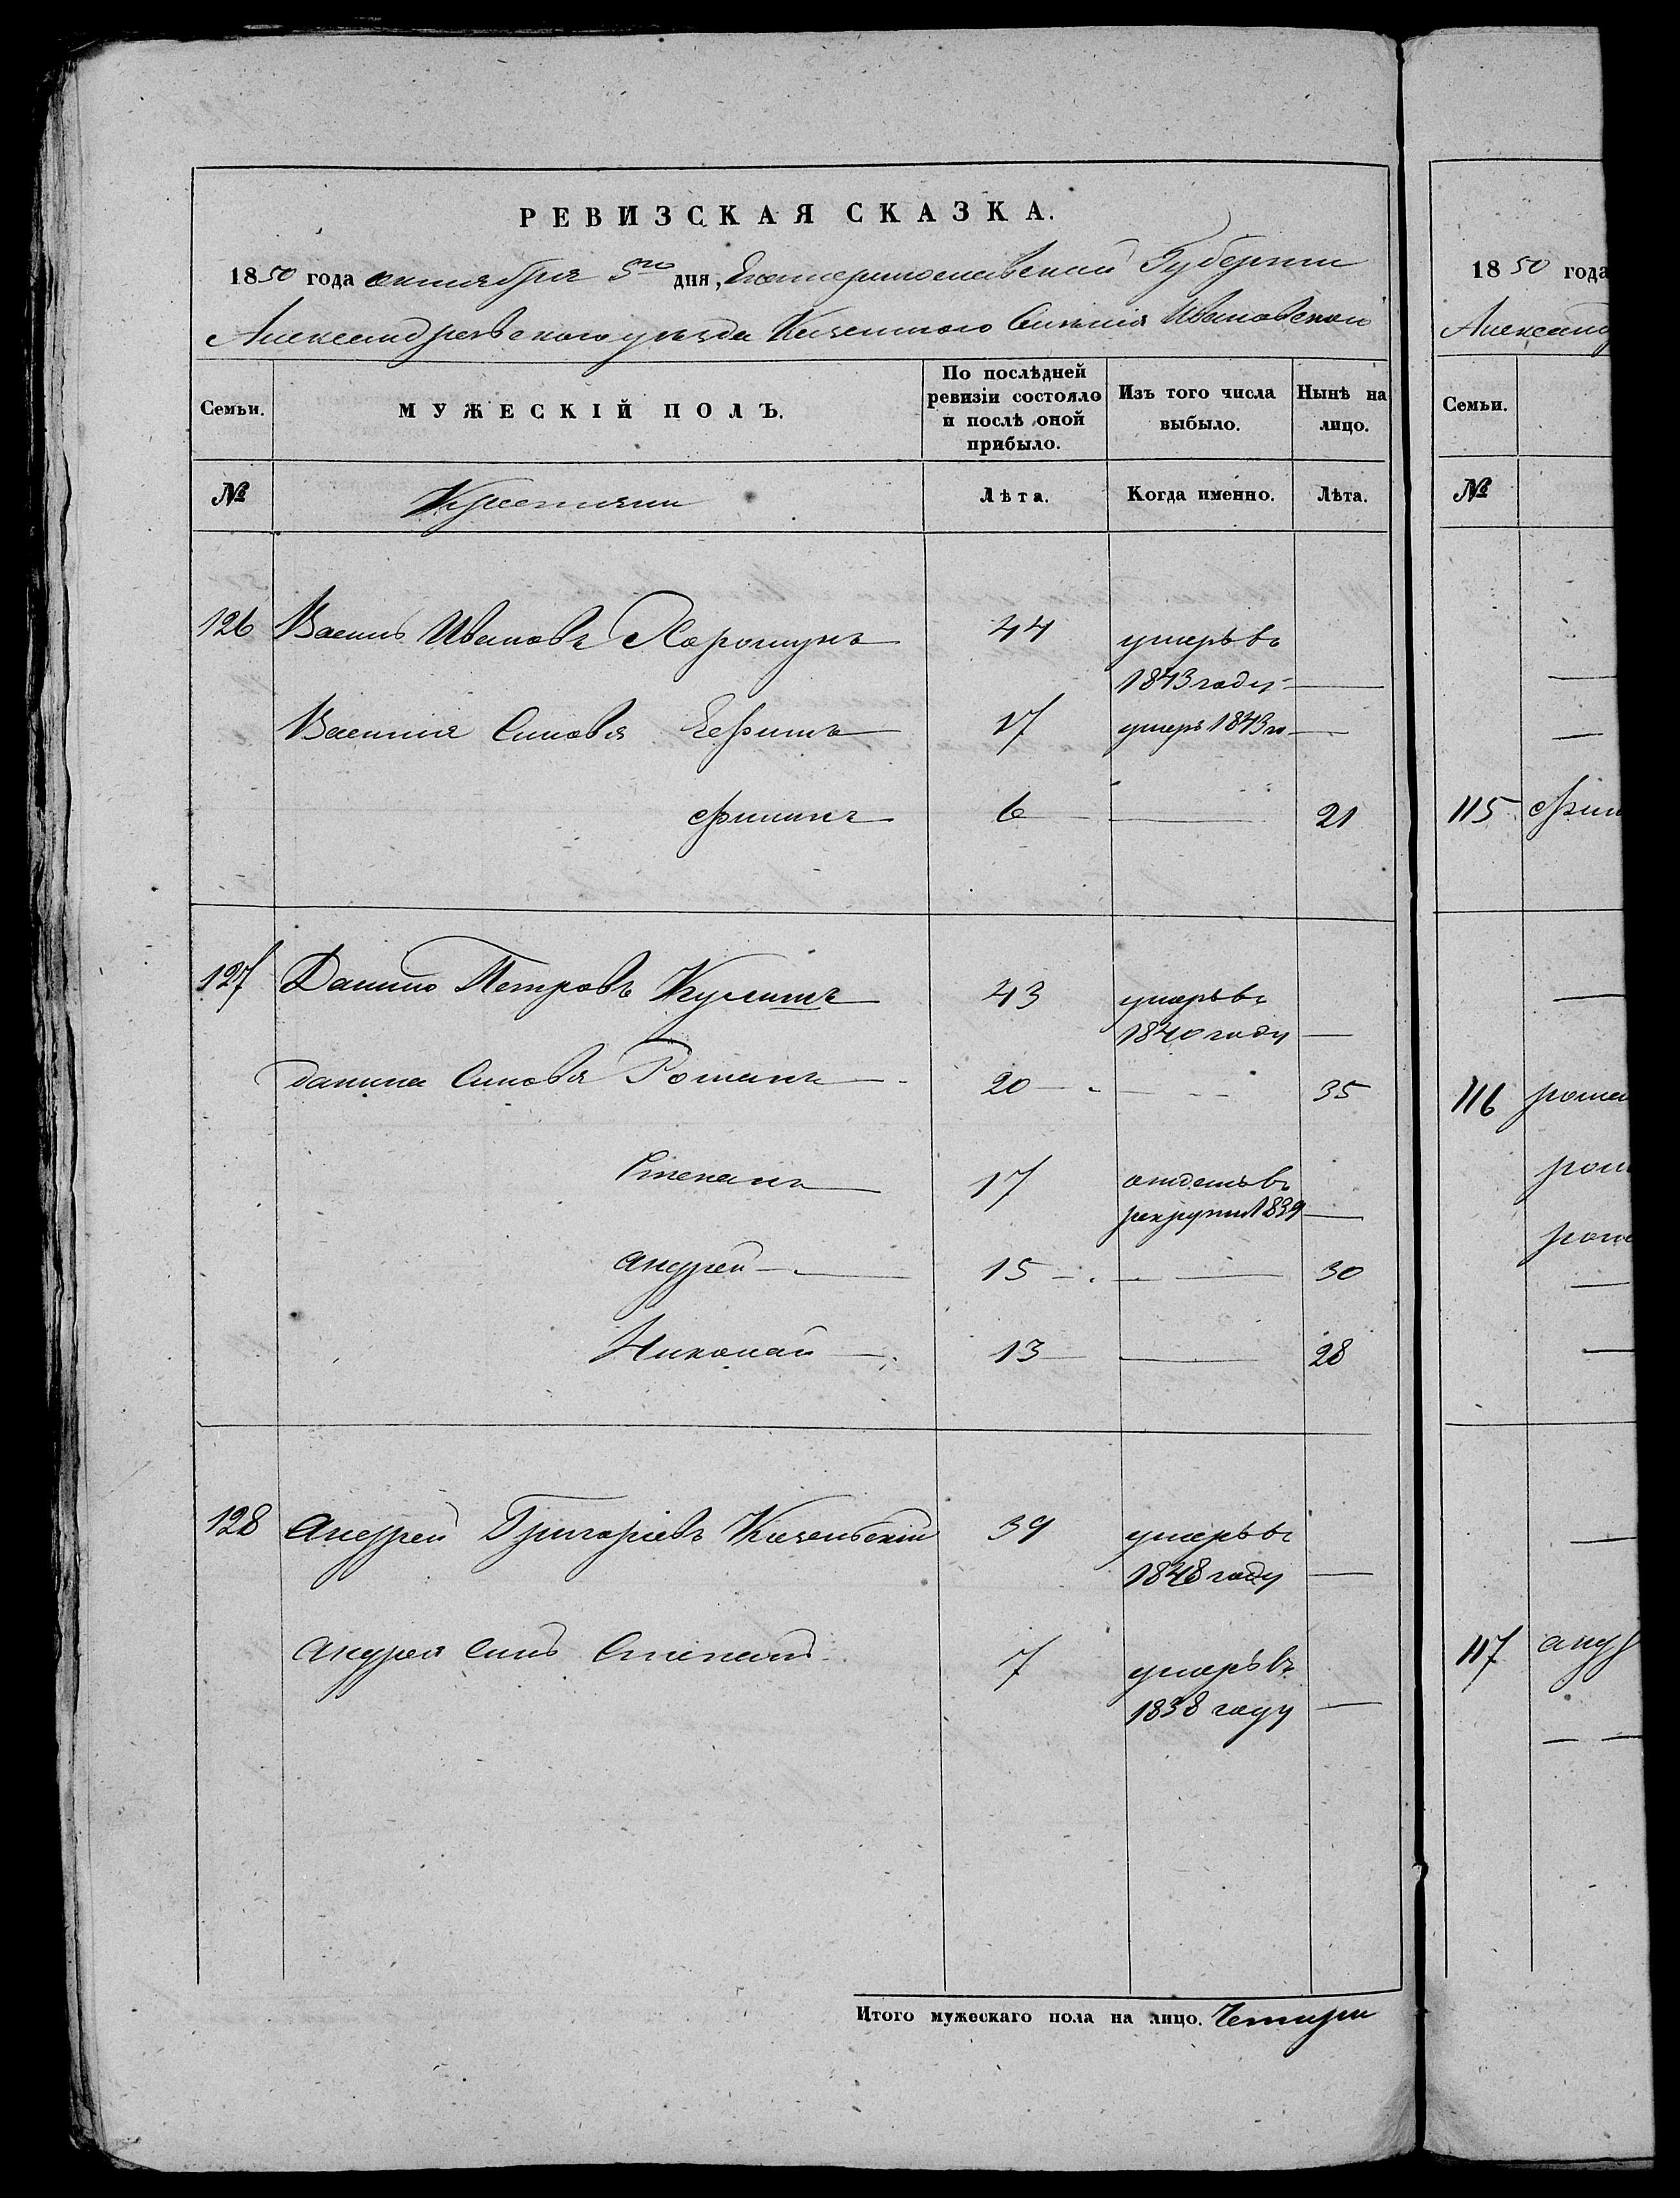 РЕВИЗСКАЯ СКАЗКА.
1850 года октября 5го дня, Екатеринославской Губернии
Александровского уезда Казенного Селения Ивановского
Семьи.
МУЖЕСКІЙ ПОЛЪ.
По послѣдней ревизіи состояло и послѣ оной прибыло.
Изъ того числа выбыло.
Нынѣ на лицо.
№
Крестяни
Лѣта.
Когда именно.
Лѣта.
126 Василь Ивановъ Хорошунъ 44 умеръ въ
1843 году —
Василия Синовя Ефимъ 17 умеръ 1843 го —
Филипъ 6 — 21
127 Данило Петровъ Кулишъ 43 умеръ въ
1840 году —
Данила Синовя Романъ 20 — 35
Степанъ 17 отданъ въ
рекрути 1839 —
Андрей 15 — 30
Николай 13 — 28
128 Андрей Григоріевъ 39 умеръ въ
1848 году —
Андрея Синъ Степанъ 7 умеръ въ
1838 году —
Итого мужескаго пола на лицо. Четири
1850 года
Александ
Семьи.
№
115 Фили
116 рома
ром
рома
117 анд